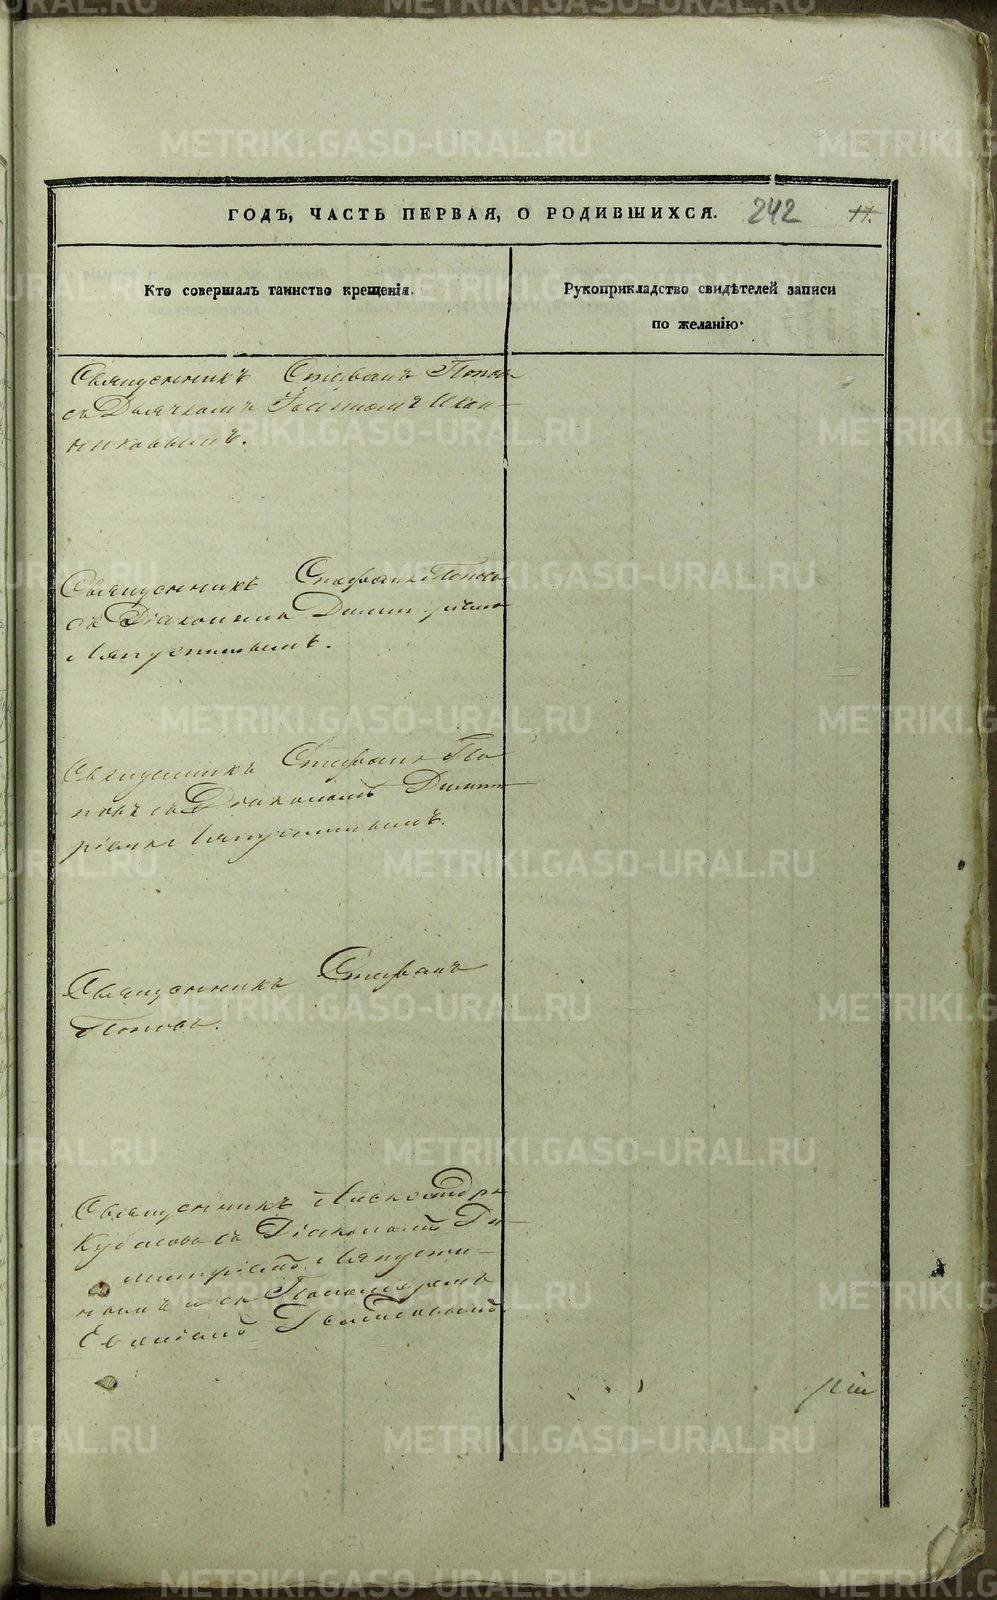 ГОДЪ, ЧАСТЬ ПЕРВАЯ, О РОДИВШИХСЯ. 242 11.
Кто совершалъ таинство крещенія.
Рукоприкладство свидѣтелей записи
по желанію.
Священникъ Стефанъ Поповъ
съ Дьячкомъ Икон-
никовымъ.
Священникъ Стефанъ Поповъ
съ Діакономъ Димитріемъ
Ляпустинымъ.
Священникъ Стефанъ По
повъ съ Діакономъ Димит
ріемъ Ляпустинымъ.
Священникъ Стефанъ
Поповъ.
Священникъ Александръ
Кубасовъ съ Діакономъ Ди-
митріемъ Ляпусти-
нымъ и съ Пономаремъ
METRIKI.GASO-URAL.RU